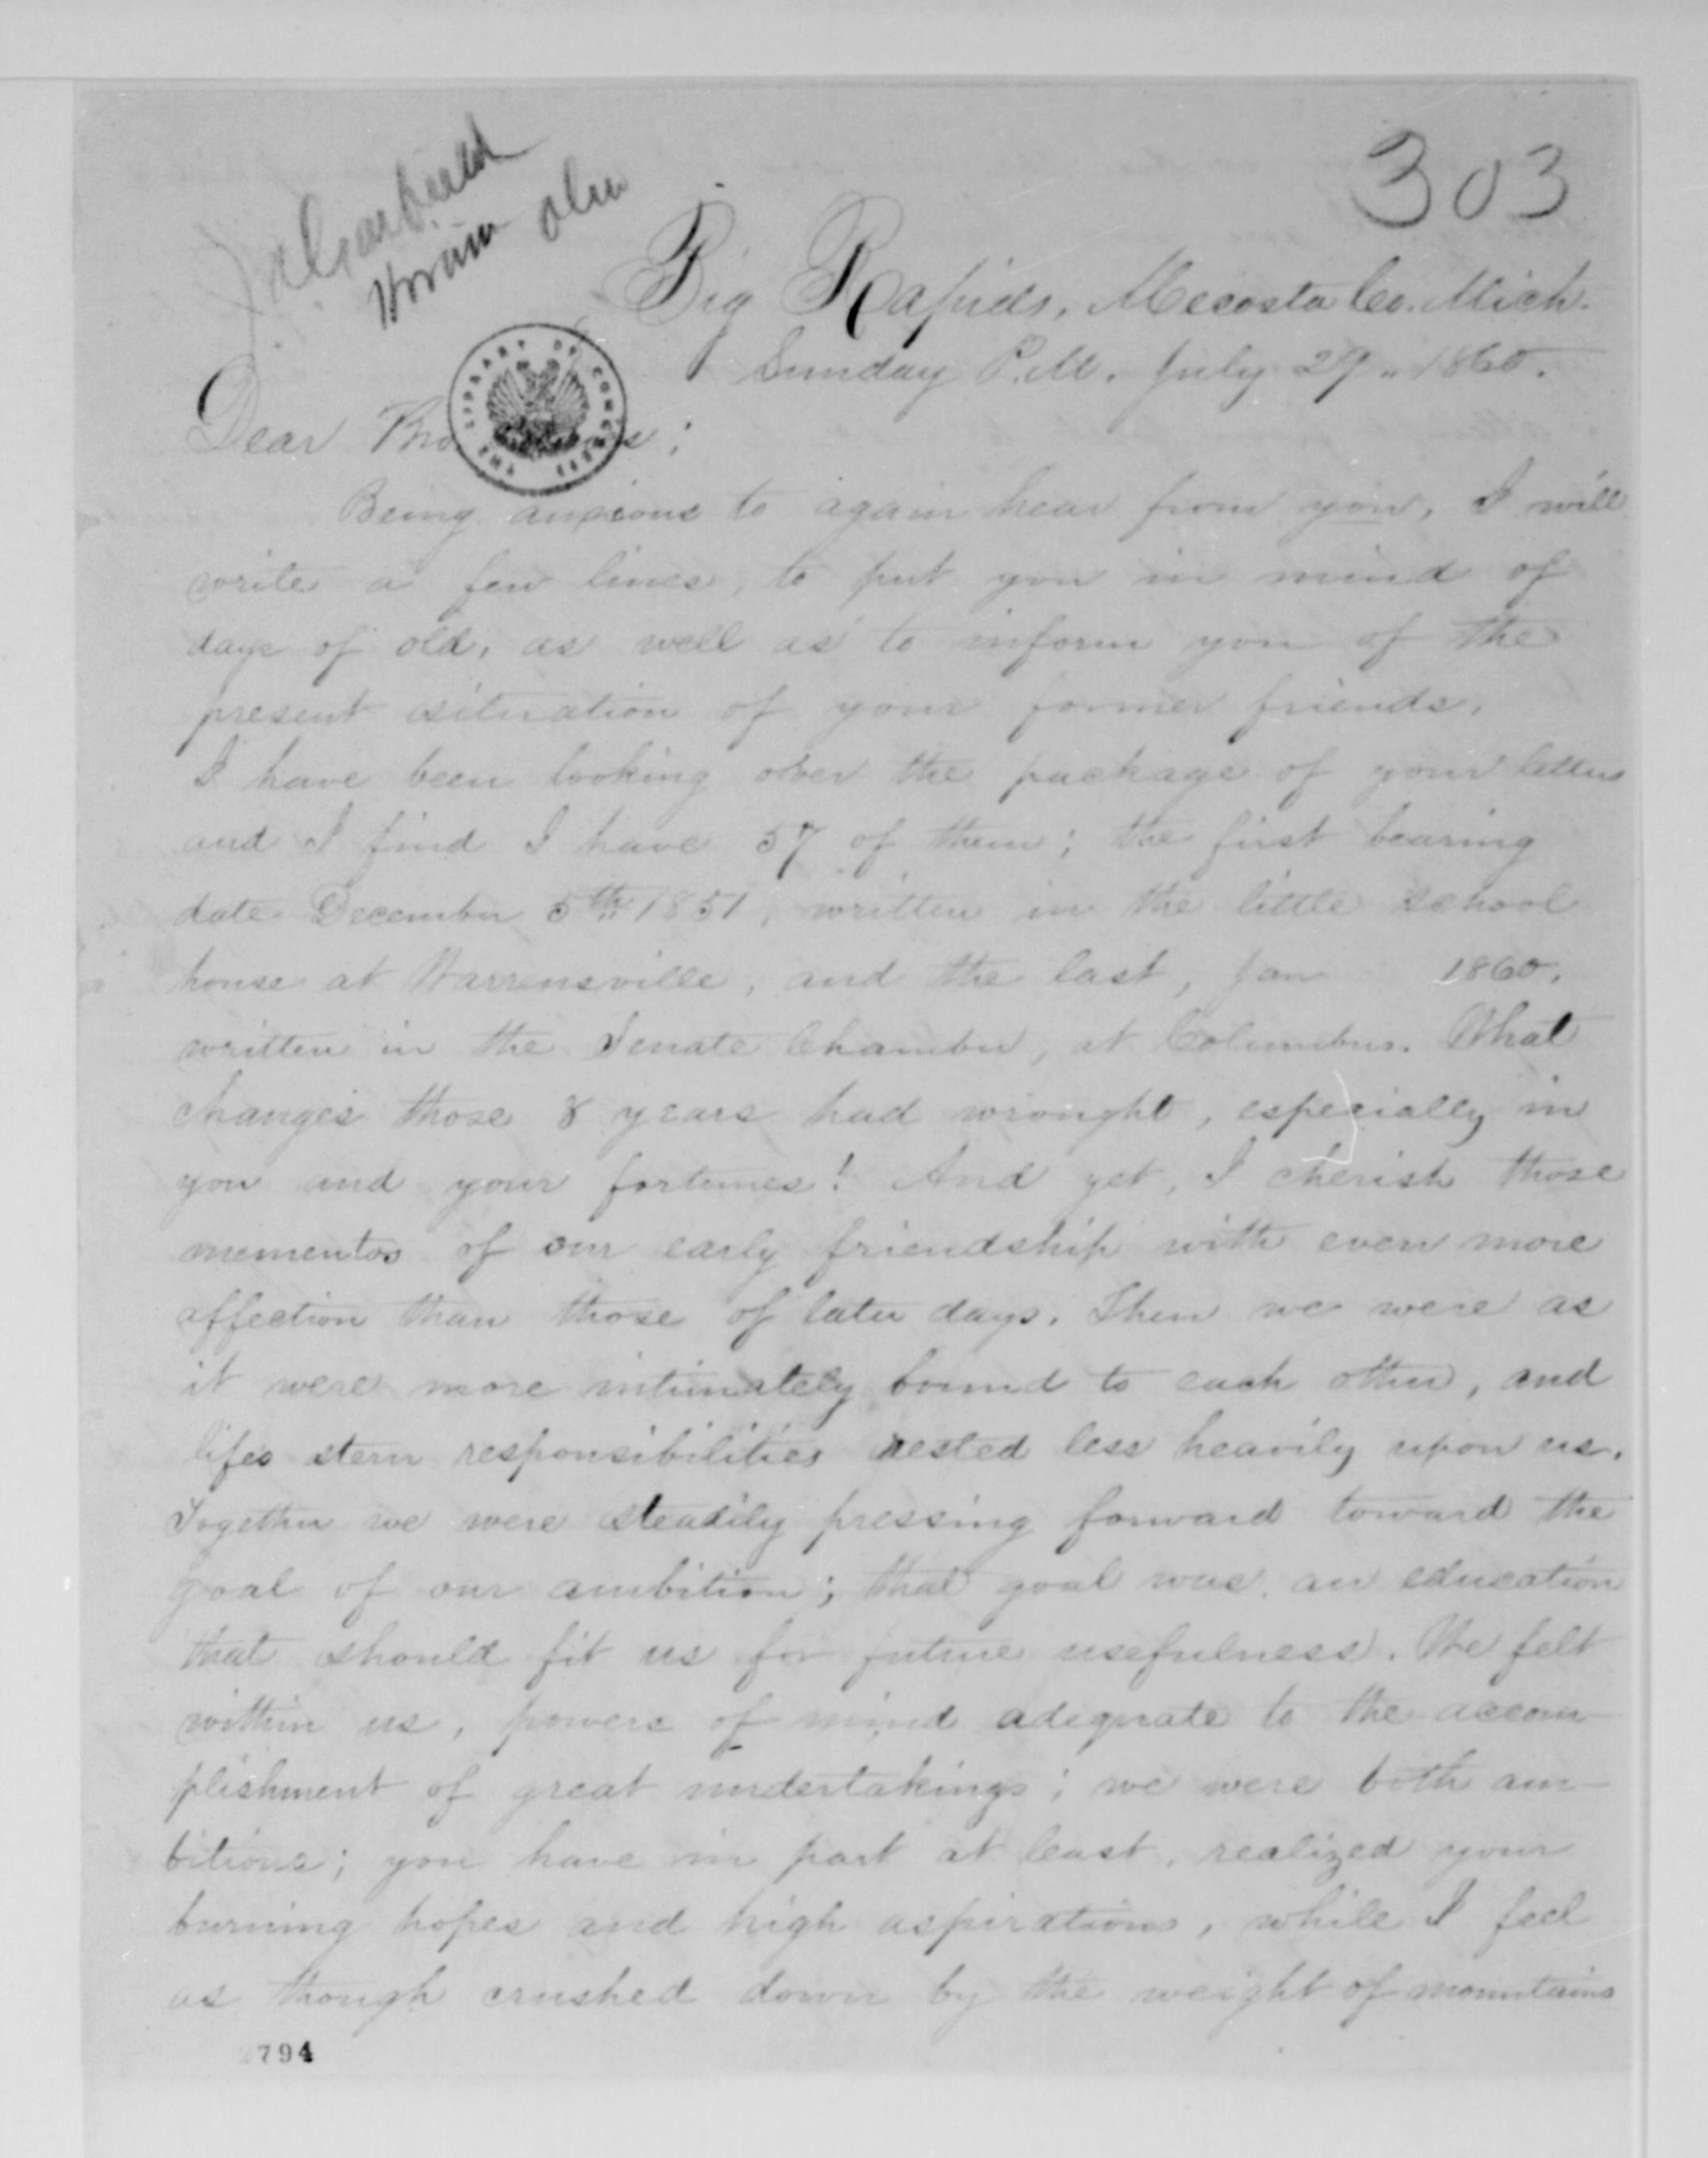 303
J A Garfield
Hiram Ohio
Big Rapids, Mecosta Co. Mich.
Sunday P.M. July 29" 1860.
THE LIBRARY OF CONGRESS
Dear Bro
Being anxious to again hear from you, I will
write a few lines, to put you in mind of
days of old, as well as to inform you of the
present situation of your former friends.
I have been looking over the package of your letters
and I find I have 57 of them; the first bearing
date December 5th 1851, written in the little school
house at Warrensville, and the last, Jan 1860.
written in the Senate Chamber, at Columbus. What
changes those 8 years had wrought, especially in
you and your fortunes! And yet, I cherish those
mementos of our early friendship with even more
affection than those of later days. Then we were as
it were more intimately bound to each other, and
lifes stern responsibilities rested less heavily upon us.
Together we were steadily pressing forward toward the
goal of our ambition; that goal was, an education
that should fit us for future usefulness. We felt
within us, powers of mind adequate to the accom-
plishment of great undertakings; we were both am-
bitious; you have in part at least, realized your
burning hopes and high aspirations, while I feel
as though crushed down by the weight of mountains
794